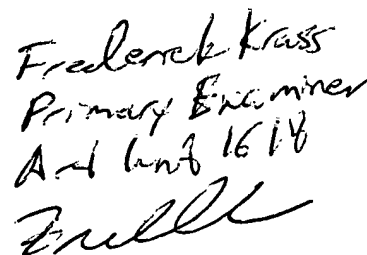 Frederick Krass
Primary Examiner
Art Unit 1618